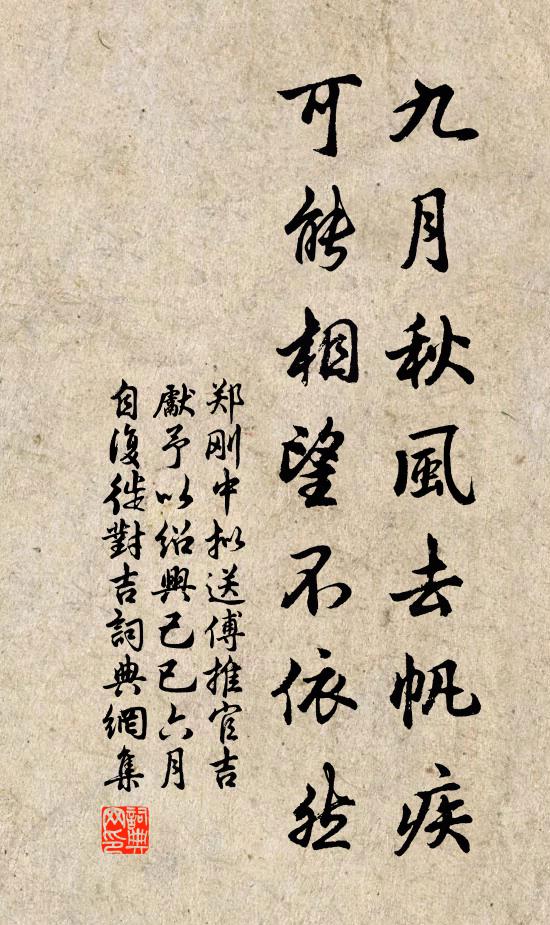 九月秋風去帆疾
可能相望不依然
郑刚中拟送傅推官吉
獻予以绍興己巳六月
自復徙對吉詞典網集
詞典网印